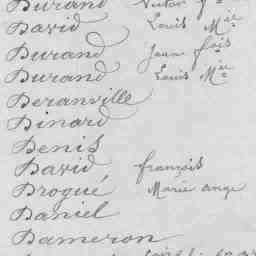 Durand Victor
David Louis Mie
Durand Jean fois
Durand Louis Mie
Deranville
Dinard
Denis
David françois
Drogué Marie ange
Daniel
Dameron